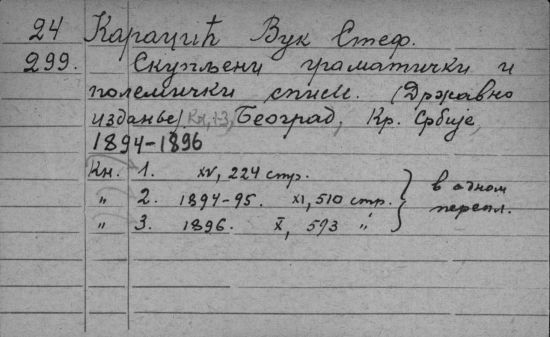 24 Караџић Вук Стеф.
299. Скупљени граматички и
полемички списи. (Државно
издање) Кн. 1-3, Београд, Кр. Србије,
1894-1896
Кн. 1. XV, 224 стр.
„ 2. 1894-95. XI, 510 стр.
„ 3. 1896. X, 573 „
в одном
перепл.